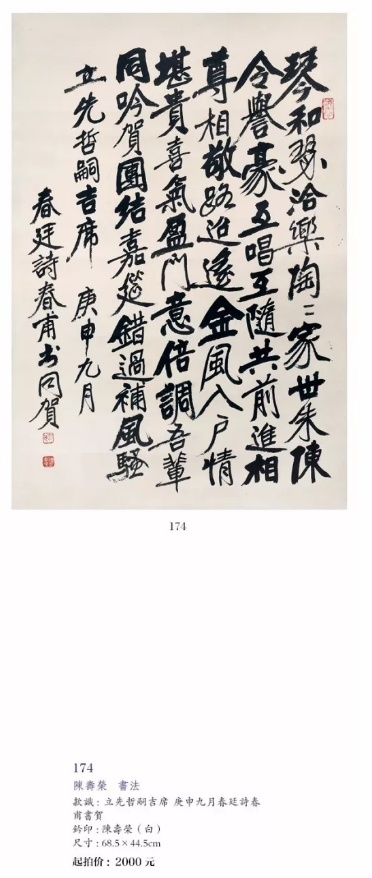 琴和瑟洽樂陶〻家世朱陳
令譽豪互唱互隨共前進相
尊相敬路迢遙金風入戶情
堪貴喜氣盈門意倍調吾輩
同吟賀團結嘉筵錯過補風騷
立先哲嗣吉席 庚申九月
春廷詩春甫书同賀
174
174
陳壽榮 書法
款識:立先哲嗣吉席 庚申九月春廷詩春
甫書賀
鈐印:陳壽榮(白)
尺寸:68.5×44.5cm
起拍价:2000 元